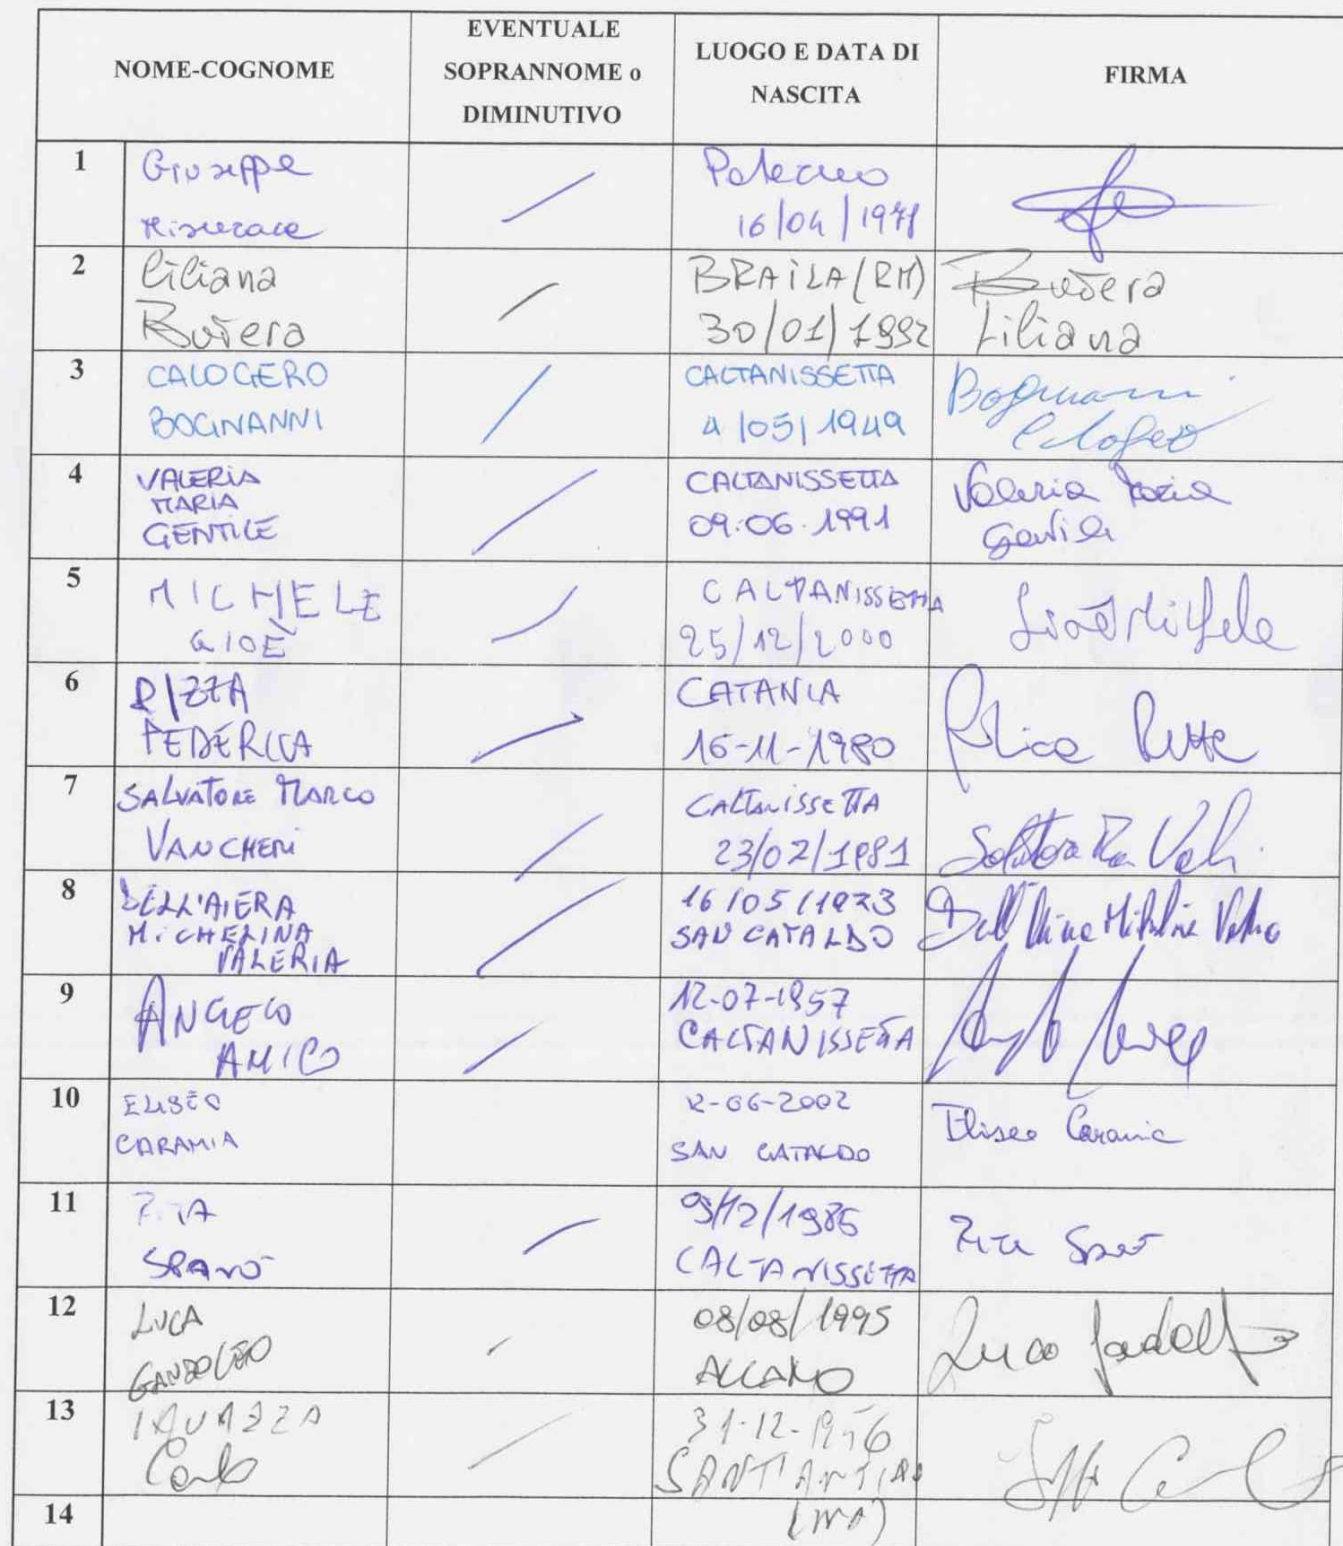 NOME-COGNOME
EVENTUALE
SOPRANNOME o
DIMINUTIVO
LUOGO E DATA DI
NASCITA
FIRMA
1
Giuseppe
Palermo
2
Liliana
BRAILA (RM)
30/01/1992
Liliana
3
CALOGERO
BOGNANNI
CALTANISSETTA
4/05/1949
Bognanni
Calogero
4
VALERIA
MARIA
GENTILE
CALTANISSETTA
09.06.1991
Valeria Maria
Gentile
5
MICHELE
GIOÈ
CALTANISSETTA
25/12/2000
Gioè Michele
6
RIZZA
FEDERICA
CATANIA
16-11-1980
7
SALVATORE MARCO
VANCHERI
CALTANISSETTA
23/02/1981
8
DELL'AIERA
MICHELINA
VALERIA
16/05/1973
SAN CATALDO
9
ANGELO
AMICO
12-07-1957
CALTANISSETTA
10
ELISEO
CARAMIA
12-06-2002
SAN CATALDO
Eliseo Caramia
11
RITA
SPANÒ
CALTANISSETTA
Rita Spanò
12
LUCA
GANDOLFO
08/08/1995
ALCAMO
Luca Gandolfo
13
Carlo
14